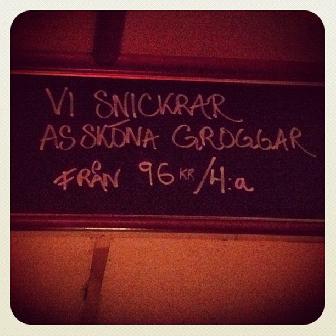 VI SNICKRAR
ASSKÖNA GROGGAR
FRÅN 96 KR/4:a